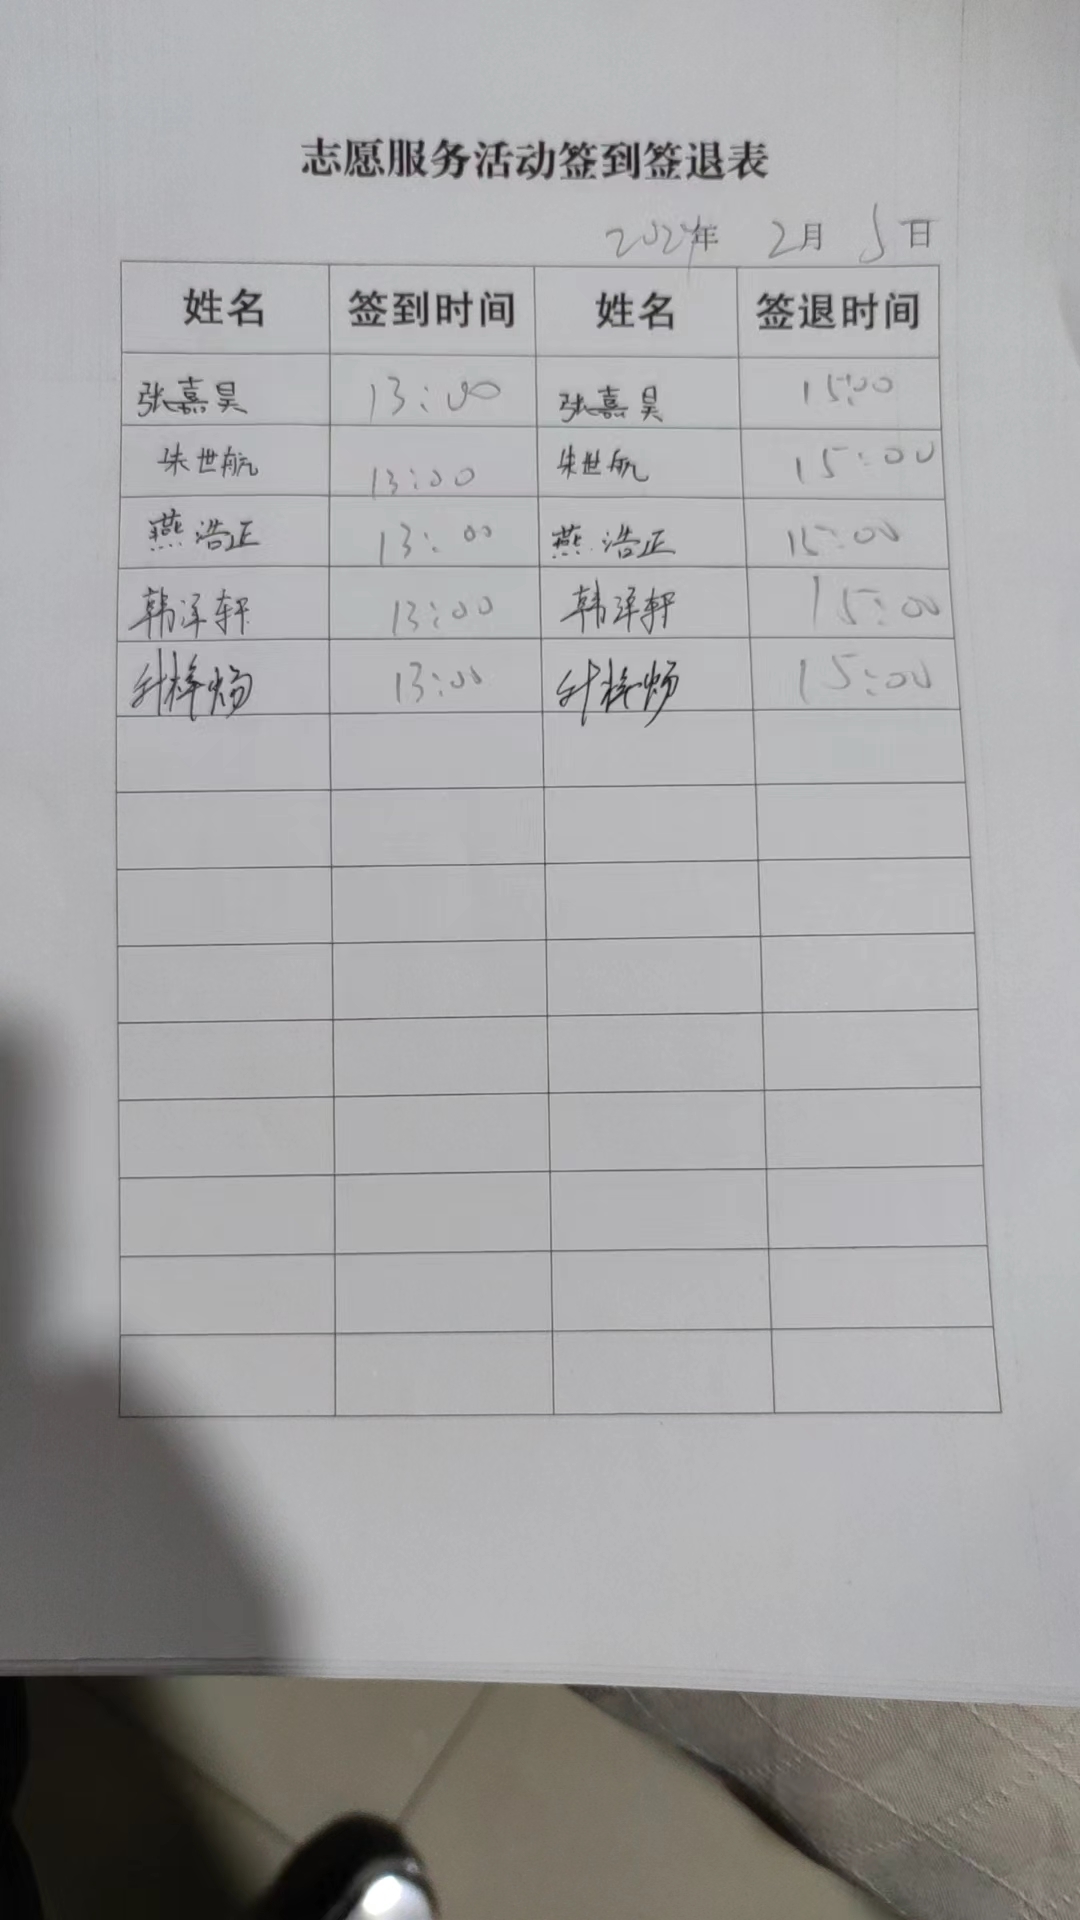 志愿服务活动签到签退表
2024年 2月 5日
姓名 签到时间 姓名 签退时间
张嘉昊 13:00 张嘉昊 15:00
朱世航 13:00 朱世航 15:00
燕浩正 13:00 燕浩正 15:00
韩泽轩 13:00 韩泽轩 15:00
13:00 15:00